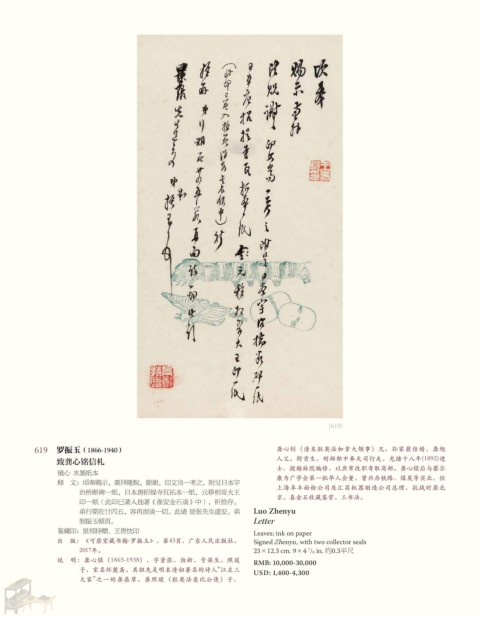 [619]
619 罗振玉（1866-1940）
致龚心铭信札
镜心 水墨纸本
释 文：顷奉赐示，兼拜隆贶，谢谢。印文当一考之，附呈日本宇
治桥断碑一纸，日本唐招提寺瓦拓本一纸，元移相哥大王
印一纸（此印已著入拙著《南安金石录》中），祈鉴存。
弟行期在廿四五，容再面谈一切，此请 景张先生道安，弟
制振玉顿首。
鉴藏印：景周持赠、王贵忱印
出 版：《可居室藏书翰·罗振玉》，第43页，广东人民出版社，
2017年。
说 明：龚心铭（1865-1938），字景张，伯新，号渠生，照瑗
子，室名怀麓斋。其祖先是明末清初著名的诗人“江左三
大家”之一的龚鼎孳。龚照瑗（驻英法意比公使）子，
龚心钊（清末驻英法加拿大领事）兄，孙家鼐侄婿，龚旭
人父。附贡生，刑部郎中奉天司行走，光绪十八年(1892)进
士，授翰林院编修，以庶常改职考取商部。龚心铭后与慕尔
康为广学会第一批华人会董，曾兴办铁路、煤炭等实业，任
上海阜丰面粉公司及江苏机器制造公司总理。抗战时居北
京。喜金石收藏鉴赏，工书法。
Luo Zhenyu
Letter
Leaves; ink on paper
Signed Zhenyu, with two collector seals
23×12.3 cm. 9×4 ⁷/₈ in. 约0.3平尺
RMB: 10,000-30,000
USD: 1,400-4,300